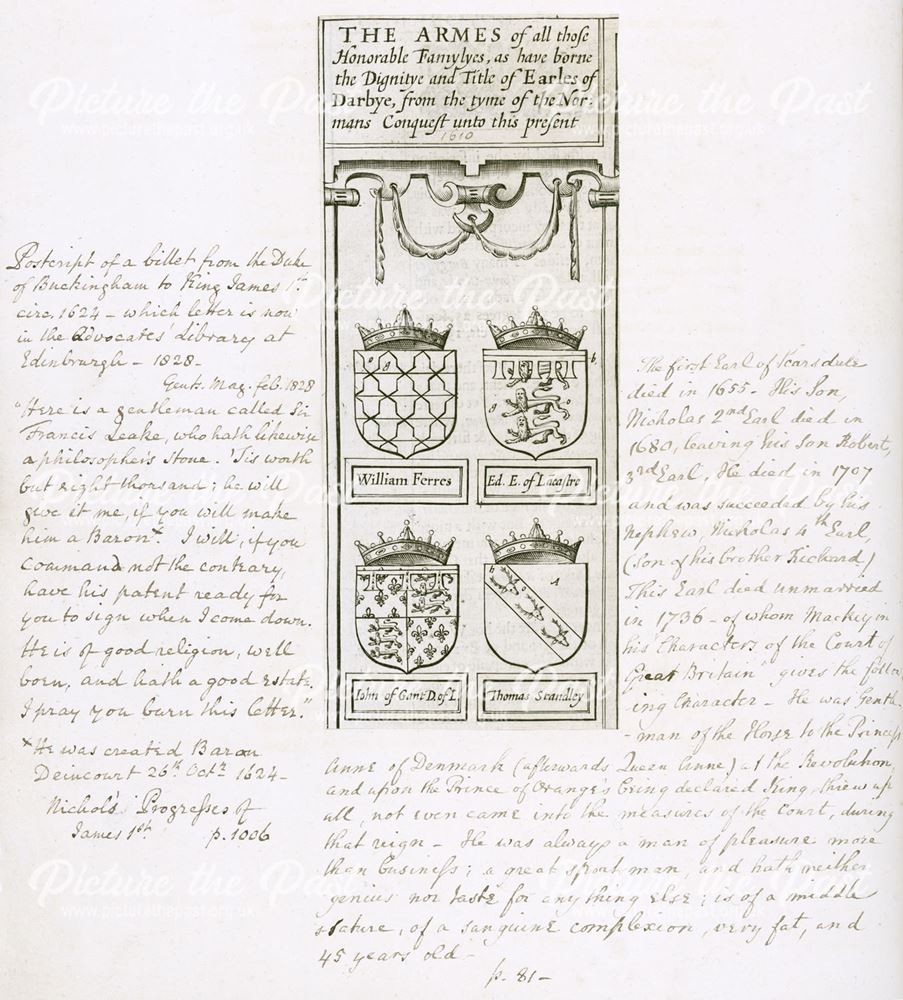 THE ARMES of all those
Honorable Famylyes, as have borne
the Dignitye and Title of Earles of
Darbye, from the tyme of the Nor:
mans Conquest unto this present
1610
William Ferres
Ed. E. of Lãcastre
John of Gant D. of L
Thomas Standley
Postcript of a billet from the Duke
of Buckingham to King James 1st
circ. 1624 – which letter is now
in the Advocates' Library at
Edinburgh – 1828 –
Gents. Mag. feb. 1828
"Here is a gentleman called Sir
Francis Leake, who hath likewise
a philosopher's stone. 'Tis worth
but eight thousand; he will
give it me, if you will make
him a Baron. I will, if you
command not the contrary,
have his patent ready for
you to sign when I come down.
He is of good religion, well
born, and hath a good estate.
I pray you burn this letter."
x He was created Baron
Deincourt 26th Octr 1624 –
Nichols's Progresses of
James 1st p. 1006
The first Earl of Scarsdale
died in 1655 – His Son,
Nicholas 2nd Earl died in
1680, leaving his Son Robert,
3rd Earl, He died in 1707
and was succeeded by his
Nephew, Nicholas 4th Earl,
(Son of his brother Richard)
This Earl died unmarried
in 1736 – of whom Mackey in
his "Characters of the Court of
Great Britain" gives the follow
ing Character – He was Gentle
-man of the Horse to the Princess
Anne of Denmark (afterwards Queen Anne) at the Revolution
and upon the Prince of Orange's being declared King, threw up
all, not even came into the measures of the Court, during
that reign – He was always a man of pleasure more
than business; a great sportman, and hath neither
genius nor taste for any thing else; is of a middle
stature, of a sanguine complexion, very fat, and
45 years old –
p. 81 –
Picture the Past
www.picturethepast.org.uk